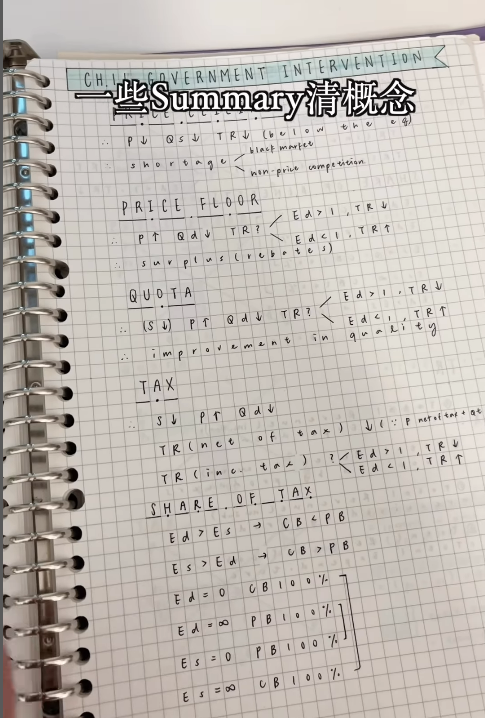 CH.11 GOVERNMENT INTERVENTION
一些Summary清概念
PRICE CEILING
∴ P↓ Qs↓ TR↓ (below the eq)
∴ shortage < black market
non-price competition
PRICE FLOOR
∴ P↑ Qd↓ TR? < Ed>1, TR↓
Ed<1, TR↑
∴ surplus (rebates)
QUOTA
∴ (S↓) P↑ Qd↓ TR? < Ed>1, TR↓
Ed<1, TR↑
∴ improvement in quality
TAX
∴ S↓ P↑ Qd↓
TR (net of tax) ↓ (∵ P net of tax + Qt
TR (inc. tax) ? < Ed>1, TR↓
Ed<1, TR↑
SHARE OF TAX
Ed>Es → CB<PB
Es>Ed → CB>PB
Ed=0 CB100%
Ed=∞ PB100%
Es=0 PB100%
Es=∞ CB100%